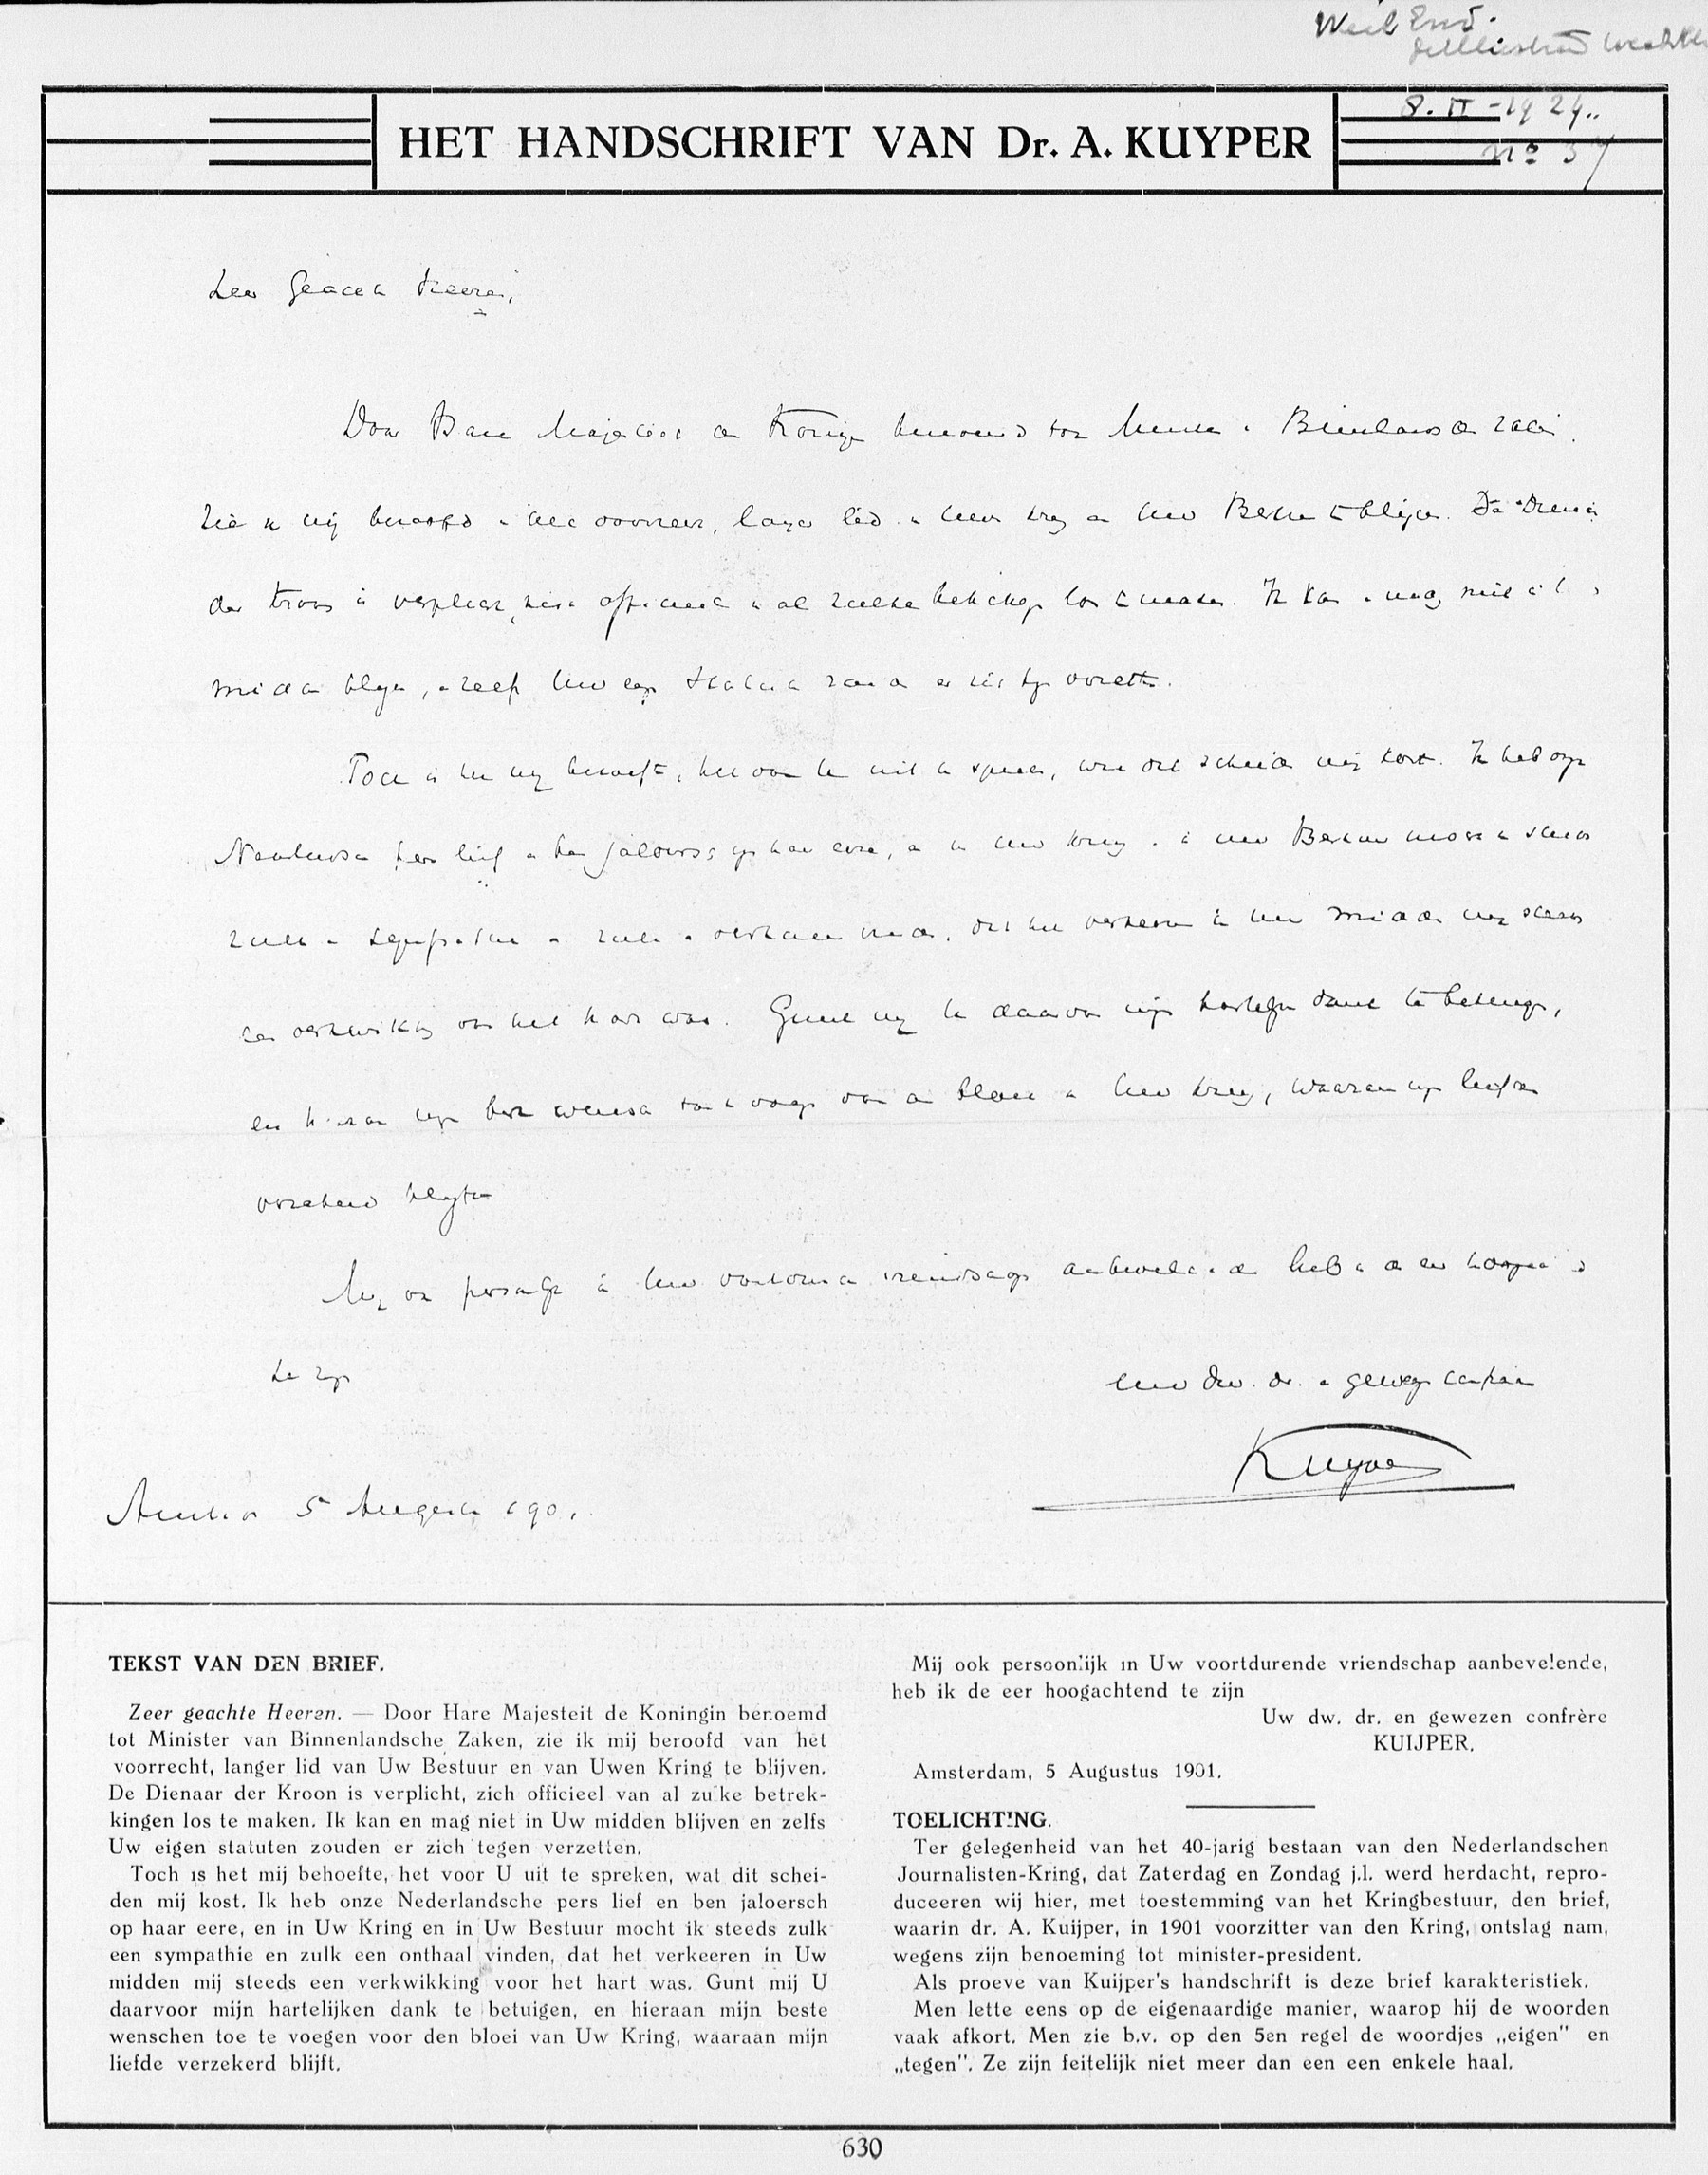 8. II - 1924..
No 37
HET HANDSCHRIFT VAN Dr. A. KUYPER
Zeer Geachte Heeren,
Door Hare Majesteit de Koningin benoemd tot Minister v. Binnenlandsche Zaken,
zie ik mij beroofd v. het voorrecht, langer lid v. Uwen Kring en Uw Bestuur te blijven. De Dienaar
der Kroon is verplicht, zich officieel v. al zulke betrekkingen los te maken. Ik kan en mag niet in Uw
midden blijven, en zelfs Uw eigen Statuten zouden er zich tegen verzetten.
Toch is het mij behoefte, het voor U uit te spreken, wat dit scheiden mij kost. Ik heb onze
Nederlandsche pers lief en ben jaloersch op haar eere, en in Uw Kring en in Uw Bestuur mocht ik steeds
zulk een sympathie en zulk een onthaal vinden, dat het verkeeren in Uw midden mij steeds
een verkwikking voor het hart was. Gunt mij U daarvoor mijn hartelijken dank te betuigen,
en hieraan mijn beste wenschen toe te voegen voor den bloei v. Uw Kring, waaraan mijn liefde
verzekerd blijft.
Mij ook persoonlijk in Uw voortdurende vriendschap aanbevelende heb ik de eer hoogachtend
te zijn
Uw dw. dr. en gewezen confrère
Kuyper
Amsterdam 5 Augustus 1901.
TEKST VAN DEN BRIEF.
Zeer geachte Heeren. — Door Hare Majesteit de Koningin benoemd
tot Minister van Binnenlandsche Zaken, zie ik mij beroofd van het
voorrecht, langer lid van Uw Bestuur en van Uwen Kring te blijven.
De Dienaar der Kroon is verplicht, zich officieel van al zulke betrek-
kingen los te maken. Ik kan en mag niet in Uw midden blijven en zelfs
Uw eigen statuten zouden er zich tegen verzetten.
Toch is het mij behoefte, het voor U uit te spreken, wat dit schei-
den mij kost. Ik heb onze Nederlandsche pers lief en ben jaloersch
op haar eere, en in Uw Kring en in Uw Bestuur mocht ik steeds zulk
een sympathie en zulk een onthaal vinden, dat het verkeeren in Uw
midden mij steeds een verkwikking voor het hart was. Gunt mij U
daarvoor mijn hartelijken dank te betuigen, en hieraan mijn beste
wenschen toe te voegen voor den bloei van Uw Kring, waaraan mijn
liefde verzekerd blijft.
Mij ook persoonlijk in Uw voortdurende vriendschap aanbevelende,
heb ik de eer hoogachtend te zijn
Uw dw. dr. en gewezen confrère
KUIJPER.
Amsterdam, 5 Augustus 1901.
TOELICHTING.
Ter gelegenheid van het 40-jarig bestaan van den Nederlandschen
Journalisten-Kring, dat Zaterdag en Zondag j.l. werd herdacht, repro-
duceeren wij hier, met toestemming van het Kringbestuur, den brief,
waarin dr. A. Kuijper, in 1901 voorzitter van den Kring, ontslag nam,
wegens zijn benoeming tot minister-president.
Als proeve van Kuijper's handschrift is deze brief karakteristiek.
Men lette eens op de eigenaardige manier, waarop hij de woorden
vaak afkort. Men zie b.v. op den 5en regel de woordjes „eigen" en
„tegen". Ze zijn feitelijk niet meer dan een een enkele haal.
630